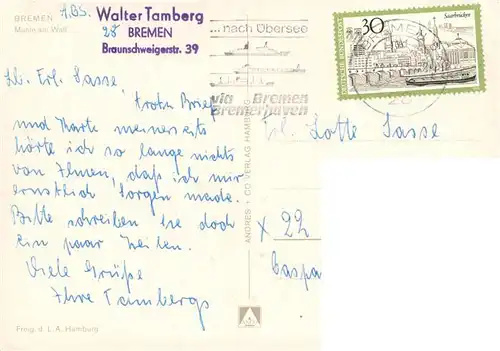 BREMEN
Marcus am Wall
ABS.
Walter Tamberg
28 BREMEN
Braunschweigerstr. 39
...nach Übersee
via Bremen
Bremerhaven
30
Saarbrücken
DEUTSCHE BUNDESPOST
BREMEN
28
Lb. Frl. Sasse,
Trotz Brief
und Karte meinerseits
hörte ich so lange nichts
von Ihnen, daß ich mir
ernstlich Sorgen mache.
Bitte schreiben Sie doch
ein paar Zeilen.
Viele Grüße
Ihre Tambergs
Frl. Lotte Sasse
X 22
Caspa
ANDRES + CO VERLAG HAMBURG
Freig. d. L. A. Hamburg